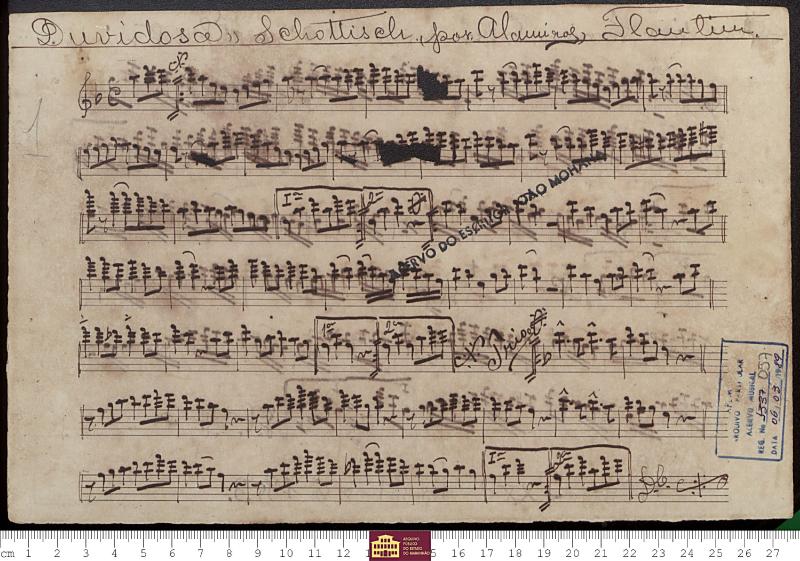 Duvidosa" Schottisch, por Alamiros, Flautim.
1
Iª 2ª
ACERVO DO ESCRITOR JOÃO MOHANA
1ª 2ª Trio
ARQUIVO
ACERVO MUSICAL
REG. No 1537/057
DATA 06.03.1989
Iª 2ª D.C.
cm 1 2 3 4 5 6 7 8 9 10 11 12 15 16 17 18 19 20 21 22 23 24 25 26 27
ARQUIVO
PÚBLICO
DO ESTADO
DO MARANHÃO